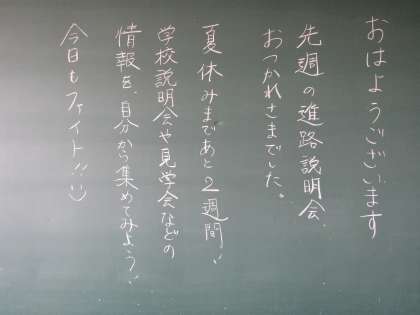 おはようございます
先週の進路説明会、
おつかれさまでした。
夏休みまであと2週間!
学校説明会や見学会などの
情報を、自分から集めてみよう!
今日もファイト!!